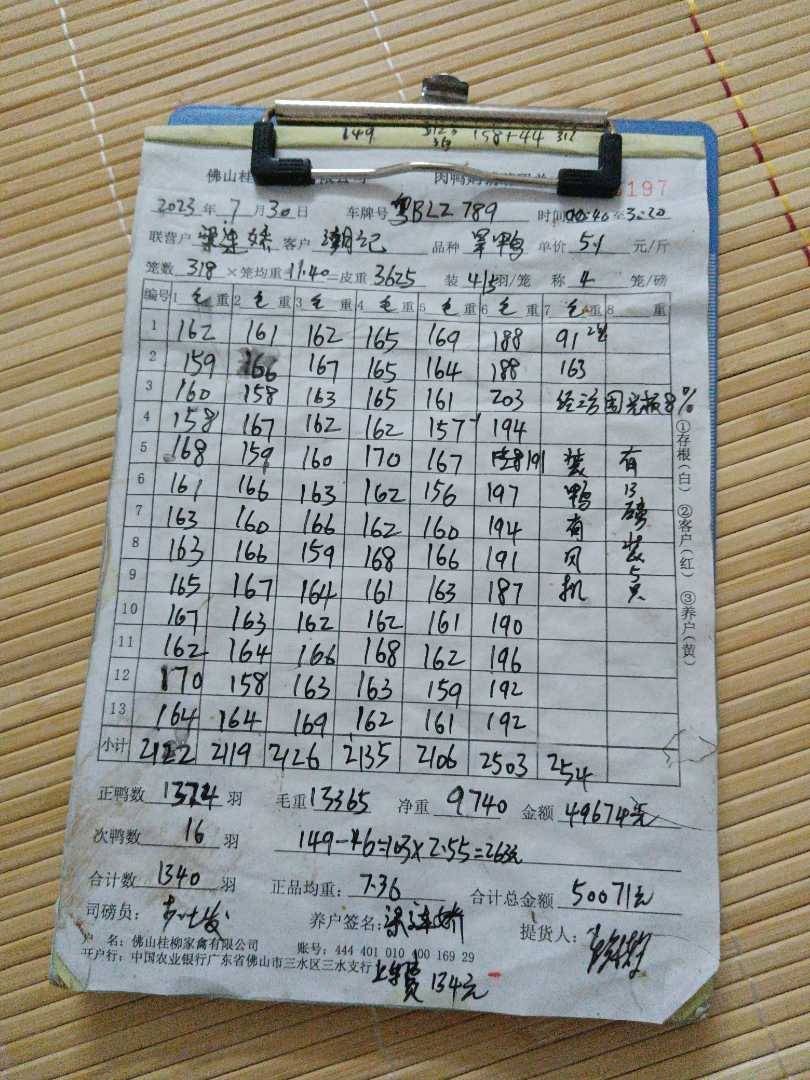 149 158+44 312
佛山桂 肉鸭购
197
2023年7月30日 车牌号 粤BLZ789 时间00:40至3:20
联营户 梁连娇 客户 潮记 品种 鸭 单价 5.1 元/斤
笼数 318 ×笼均重 11.40 =皮重 3625 装 4/5 羽/笼 称 4 笼/磅
编号 1 毛 重 2 毛 重 3 毛 重 4 毛 重 5 毛 重 6 毛 重 7 毛 重 8 重
1 162 161 162 165 169 188 91
2 159 166 167 165 164 188 163
3 160 158 163 165 161 203 8%
4 158 167 162 162 157 194
5 168 159 160 170 167 191 装 有
6 161 166 163 162 156 197 鸭 13
7 163 160 166 162 160 194 有 磅
8 163 166 159 168 166 191 风 装
9 165 167 164 161 163 187 机 5只
10 167 163 162 162 161 190
11 162 164 166 168 162 196
12 170 158 163 163 159 192
13 164 164 169 162 161 192
小计 2122 2119 2126 2135 2106 2503 254
①存根(白) ②客户(红) ③养户(黄)
正鸭数 1324 羽 毛重 13365 净重 9740 金额 49674元
次鸭数 16 羽 149-46=103×2.55=263元
合计数 1340 羽 正品均重: 7.36 合计总金额 50071元
司磅员: 养户签名: 梁连娇 提货人:
户 名: 佛山桂柳家禽有限公司 账号: 444 401 010 400 169 29
开户行: 中国农业银行广东省佛山市三水区三水支行 上车费 134元